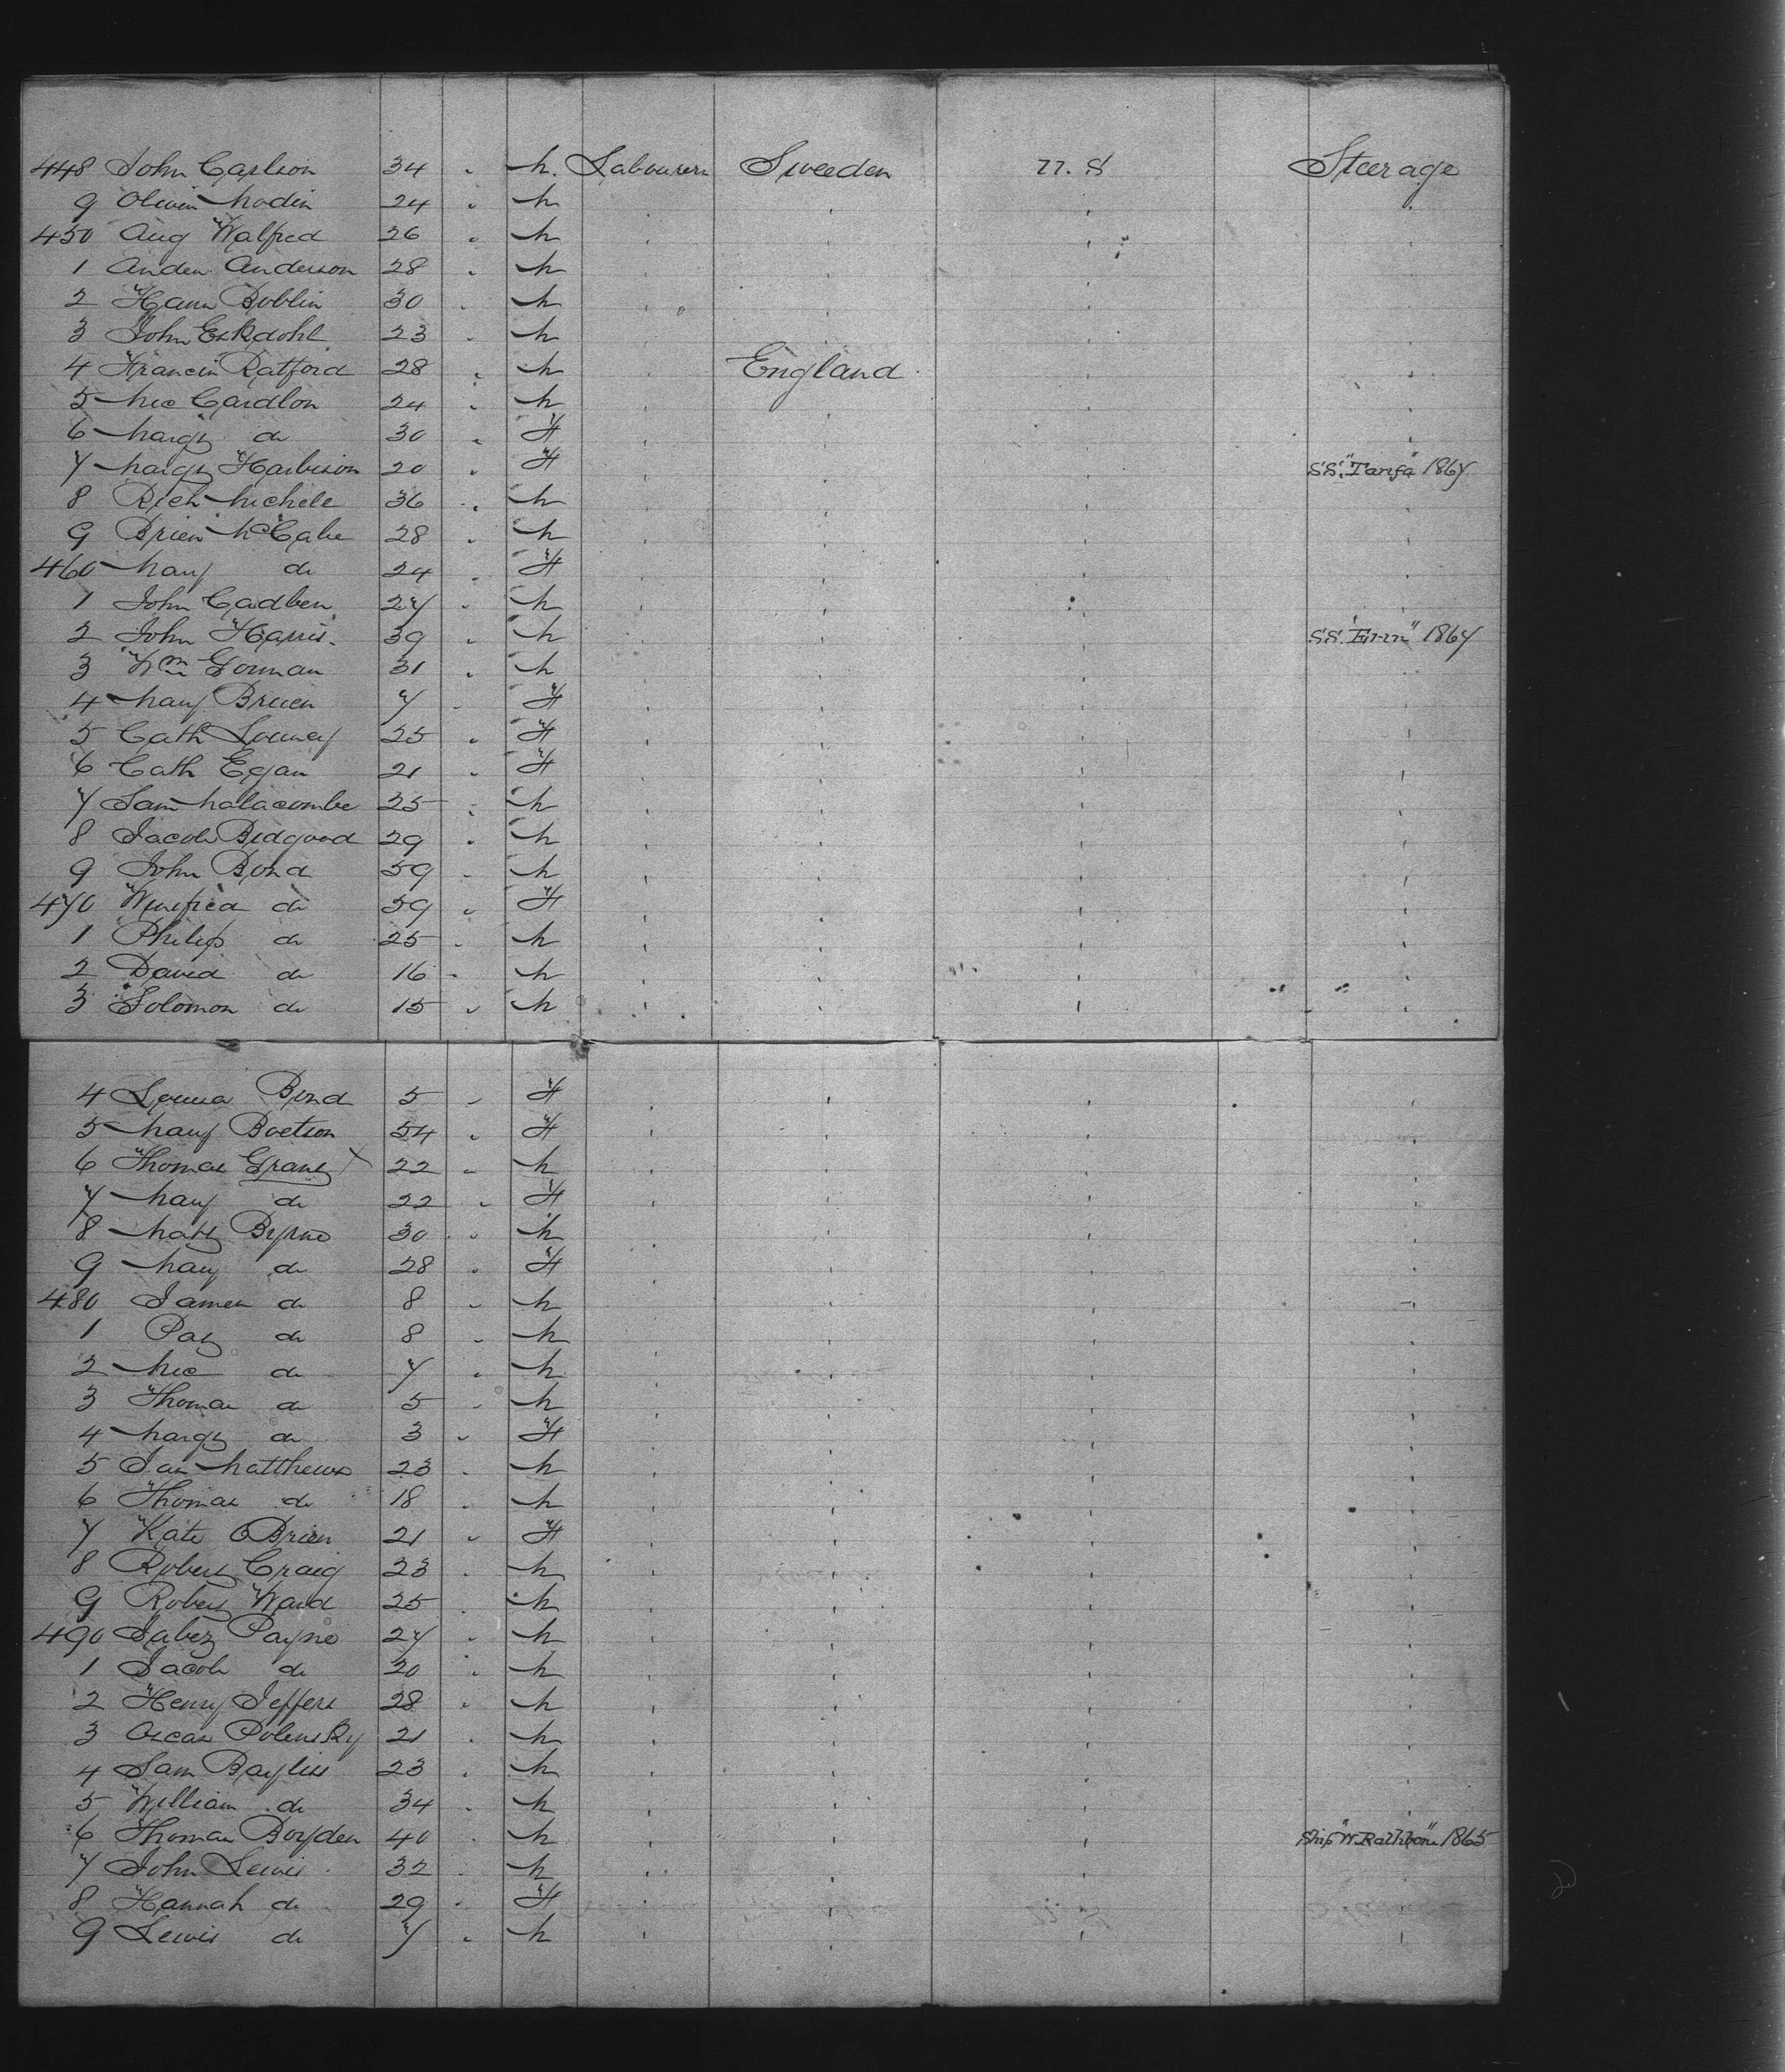 448 John Carlson 34 " M. Labourers Sweeden U.S Steerage
9 Olivin Modin 24 " M
450 Aug Walfred 26 " M
1 Anden Anderson 28 " M
2 Hans Boblin 30 " M
3 John Eskdohl 23 " M
4 Francis Ratford 28 " M England
5 Mic Cardlon 24 " M
6 Margt do 30 " F
7 Margt Harbison 20 " F S.S. "Tarifa" 1867
8 Rich Michele 36 " M
9 Brien McCabe 28 " M
460 Mary do 24 " F
1 John Cadben 27 " M
2 John Harris 39 " M S.S. "Erin" 1867
3 Wm Gorman 31 " M
4 Mary Bruen 7 " F
5 Cath Lowney 25 " F
6 Cath Egan 21 " F
7 Sam Malacombe 25 " M
8 Jacob Bidgood 29 " M
9 John Bond 59 " M
470 Winifred do 59 " F
1 Philip do 25 " M
2 David do 16 " M
3 Solomon do 15 " M
4 Louisa Bond 5 " F
5 Mary Boetson 54 " F
6 Thomas Grant X 22 " M
7 Mary do 22 " F
8 Matt Byrne 30 " M
9 Mary do 28 " F
480 James do 8 " M
1 Pat do 8 " M
2 Mic do 7 " M
3 Thomas do 5 " M
4 Margt do 3 " F
5 Jas Matthews 23 " M
6 Thomas do 18 " M
7 Kate OBrien 21 " F
8 Robert Craig 23 " M
9 Robert Ward 25 " M
490 Jabez Payne 27 " M
1 Jacob do 20 " M
2 Henry Jeffers 28 " M
3 Oscar Polensky 21 " M
4 Sam Bayliss 23 " M
5 William do 34 " M
6 Thomas Boyden 40 " M Ship "W. Rathbone" 1865
7 John Lewis 32 " M
8 Hannah do 29 " F
9 Lewis do 7 " M